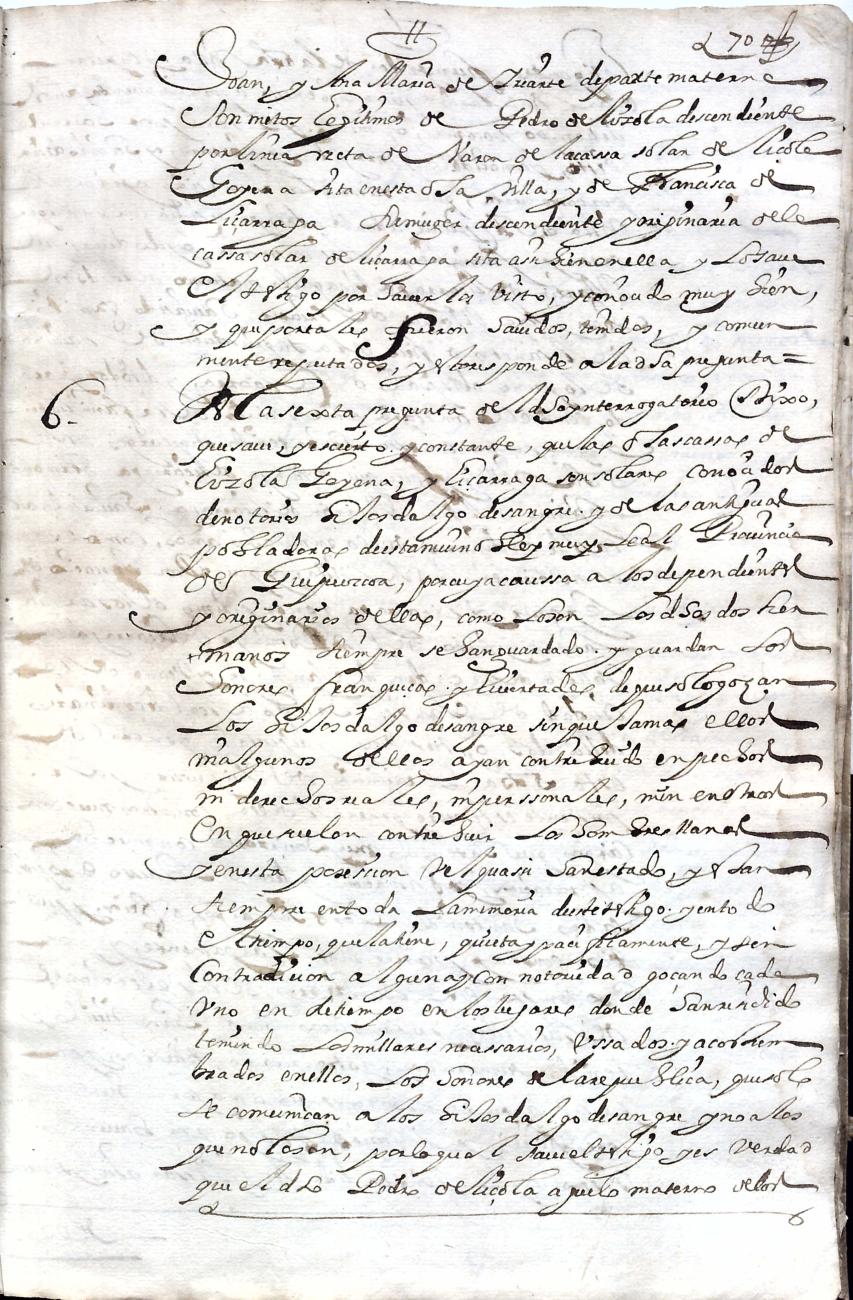 11
270
Joan, y Ana Maria de Iriarte de parte materna
Son nietos legitimos de Pedro de lizola descendiente
por linia recta de Varon de la cassa solar de lizola
Goyena sita en esta dha Villa, y de Francisca de
Liçarraga su muger descendiente y originaria de la
cassa solar de liçarraga sita asi bien en ella y lo saue
el testigo por hauerlos visto, y conoçido muy bien,
y que por tales fueron hauidos, tenidos, y comun
mente reputados, y esto responde a la dha pregunta =
6.
A la sexta pregunta del dho ynterrogatorio Dixo,
que saue, y es cierto y constante, que las dhas cassas de
Lizola Goyena, y Liçarraga son solares conocidos
de notorios hijosdalgo de sangre y de las antiguas
pobladoras de esta mui noble y muy Leal Prouincia
de Guipuzcoa, por cuya caussa a los dependientes
y originarios dellas, como lo son Los dhos dos her
manos siempre se han guardado y guardan Los
honores franqueças y liuertades de que solo goçan
Los hijosdalgo de sangre sin que Jamas ellos
ni algunos dellos ayan contribuido en pechos
ni derechos reales, ni perssonales, ni en otros
en que suelen contribuir Los hombres llanos
y en esta posession vel quasi han estado, y estan
siempre en toda La memoria deste testigo y en todo
el tiempo, que la tiene, quieta y pacificamente, y sin
Contradicion alguna y con notoriedad goçando cada
vno en su tiempo en los lugares donde han residido
teniendo Los millares necessarios, vssados y acostum
brados en ellos, Los honores de la republica, que solo
se comunican a los hijosdalgo de sangre y no a los
que no lo son, por lo qual saue el testigo y es verdad
que el dho Pedro de liçola aguelo materno de los